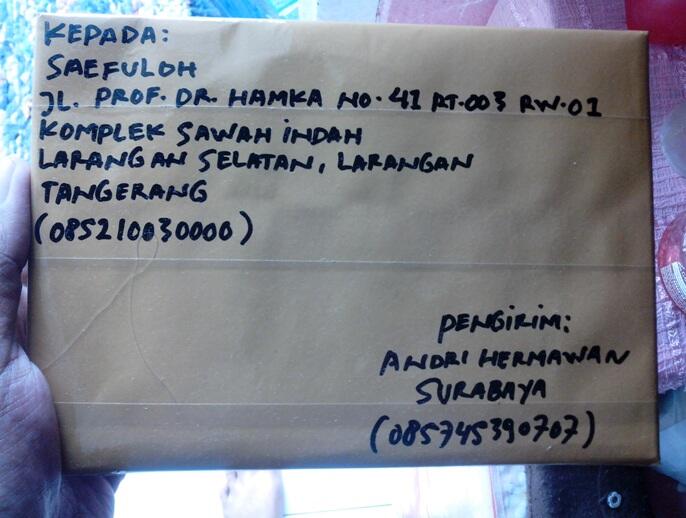 KEPADA:
SAEFULOH
JL. PROF. DR. HAMKA NO. 41 RT.003 RW.01
KOMPLEK SAWAH INDAH
LARANGAN SELATAN, LARANGAN
TANGERANG
(085210030000)
PENGIRIM:
ANDRI HERMAWAN
SURABAYA
(085745390707)